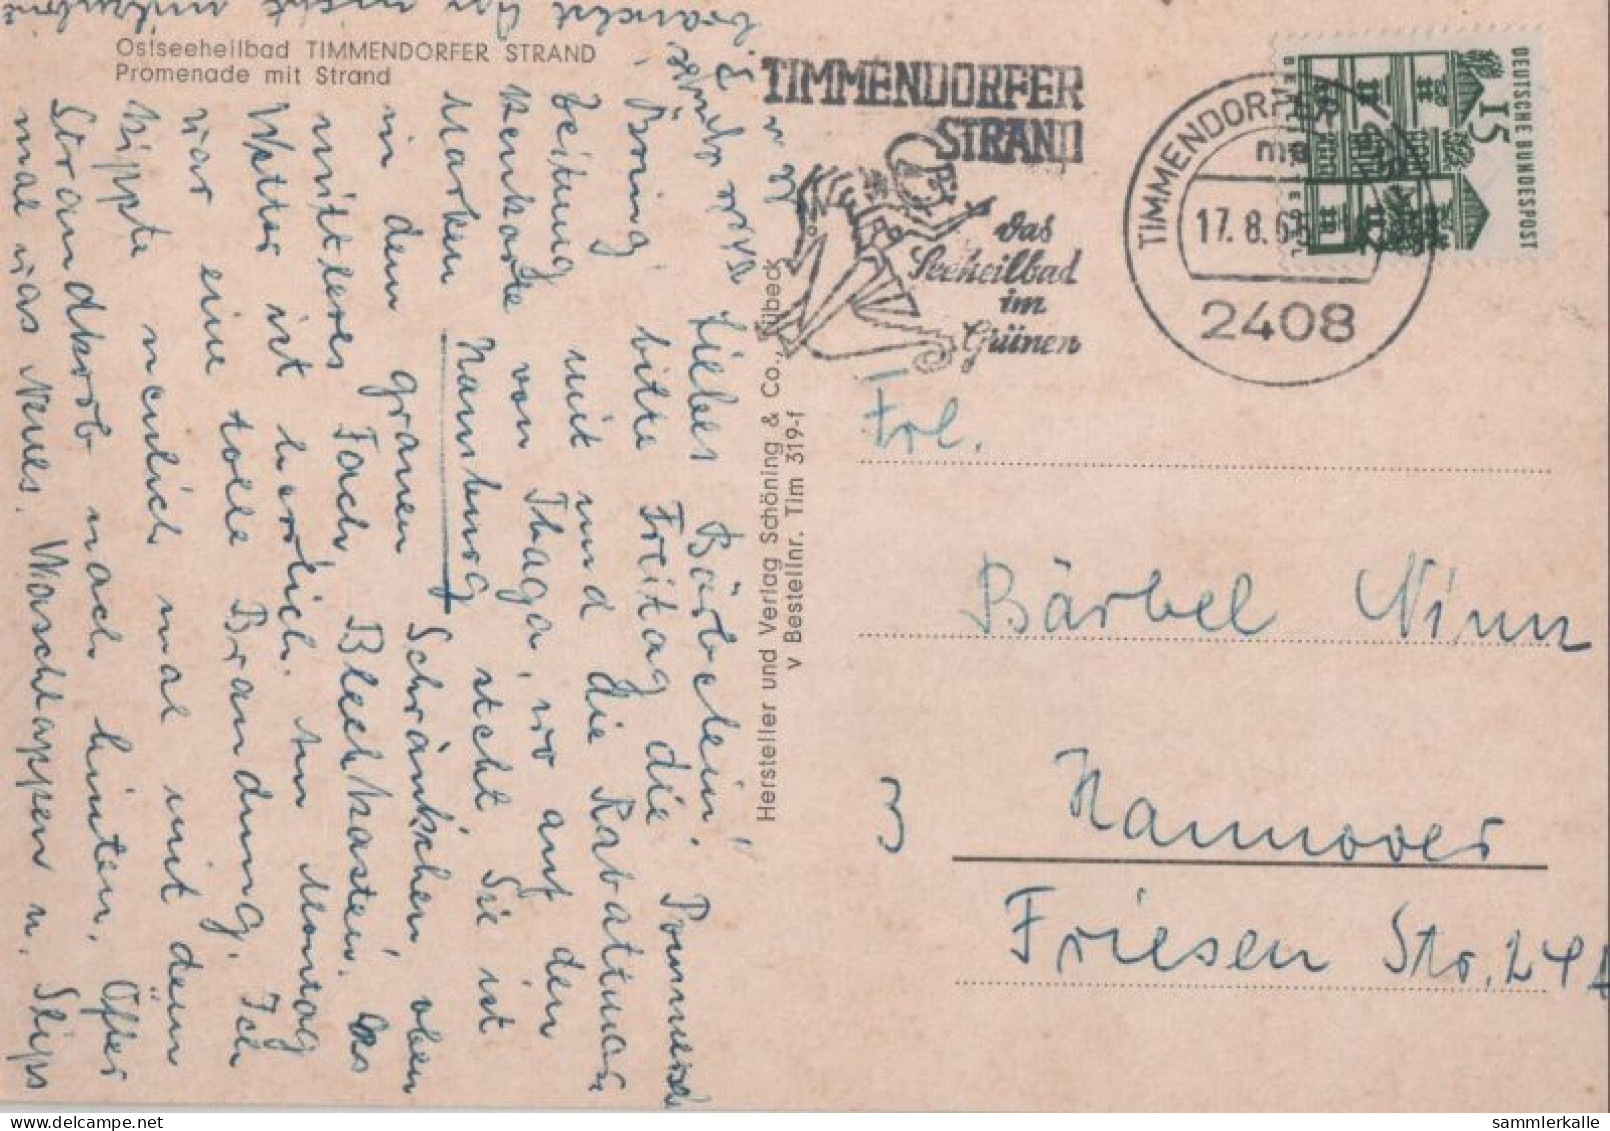 Ostseeheilbad TIMMENDORFER STRAND
Promenade mit Strand
Liebes Bärbelein! Pommersch
Bring bitte Freitag die
Zeitung mit und die Rabattmar
kenkarte von Thaga, wo auf den
Marken Hamburg steht. Sie ist
in dem grauen Schränkchen, oben
mittleres Fach, Blechkasten. Das
Wetter ist herrlich. Am Montag
war eine tolle Brandung. Ich
kippte neulich mal mit dem
Strandkorb nach hinten. Öfter
mal was Neues. Waschlappen u. Slips
brauchst Du nicht
Hersteller und Verlag Schöning & Co., Lübeck
v Bestellnr. Tim 319-f
TIMMENDORFER
STRAND
das
Seeheilbad
im
Grünen
TIMMENDORFER
17. 8. 6
2408
DEUTSCHE BUNDESPOST
15
Frl.
Bärbel Ninn
3 Hannover
Friesen Str. 24A
sammlerkalle